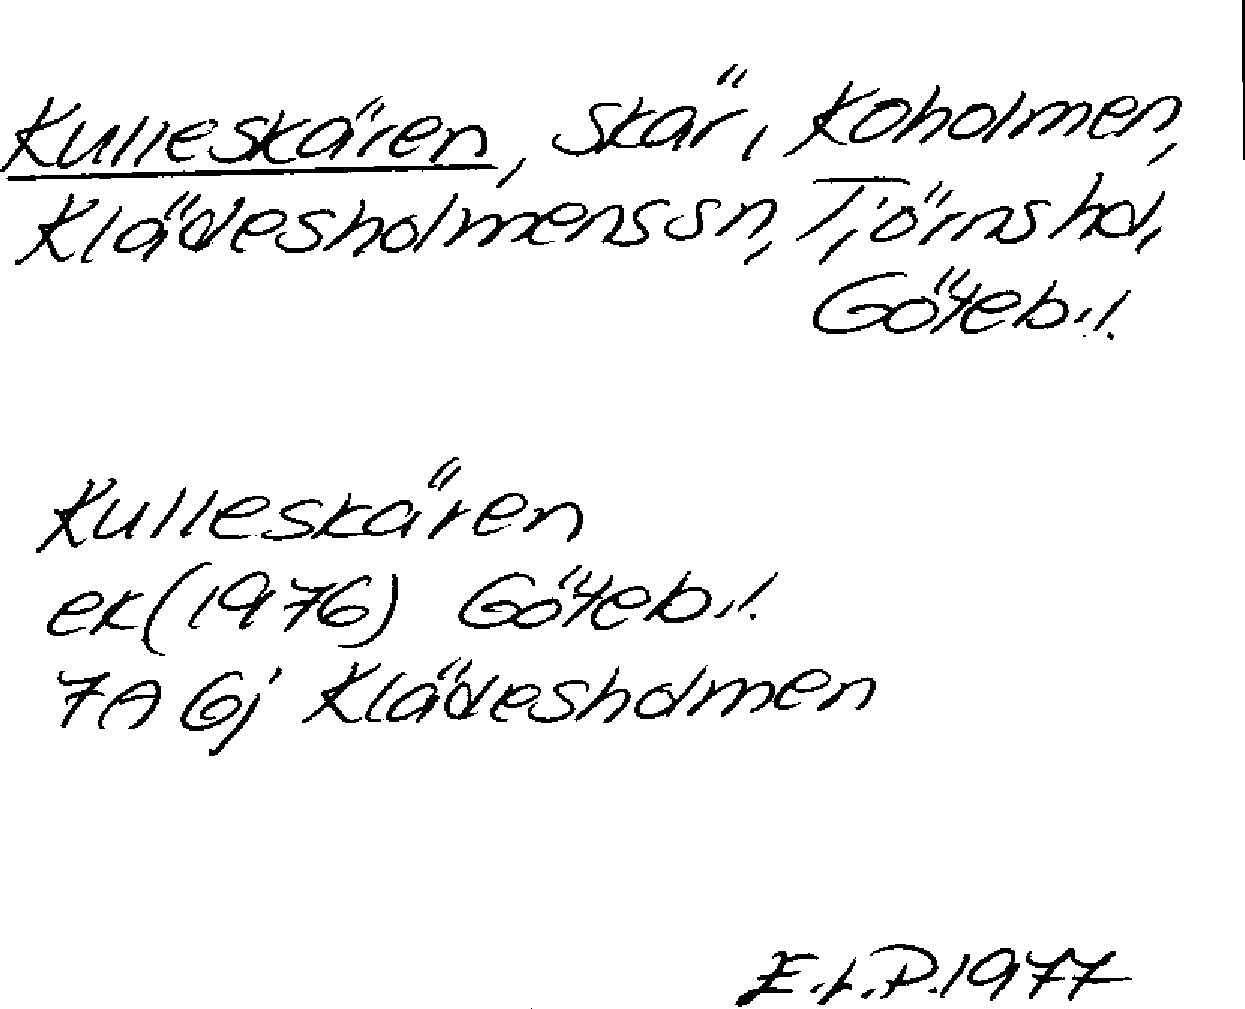 Kulleskären, skär, Koholmen,
Klädesholmens sn, Tjörns hd,
Göteb. l.
Kulleskären
ek (1976) Göteb. l.
7A 6j Klädesholmen
E.L.P. 1977